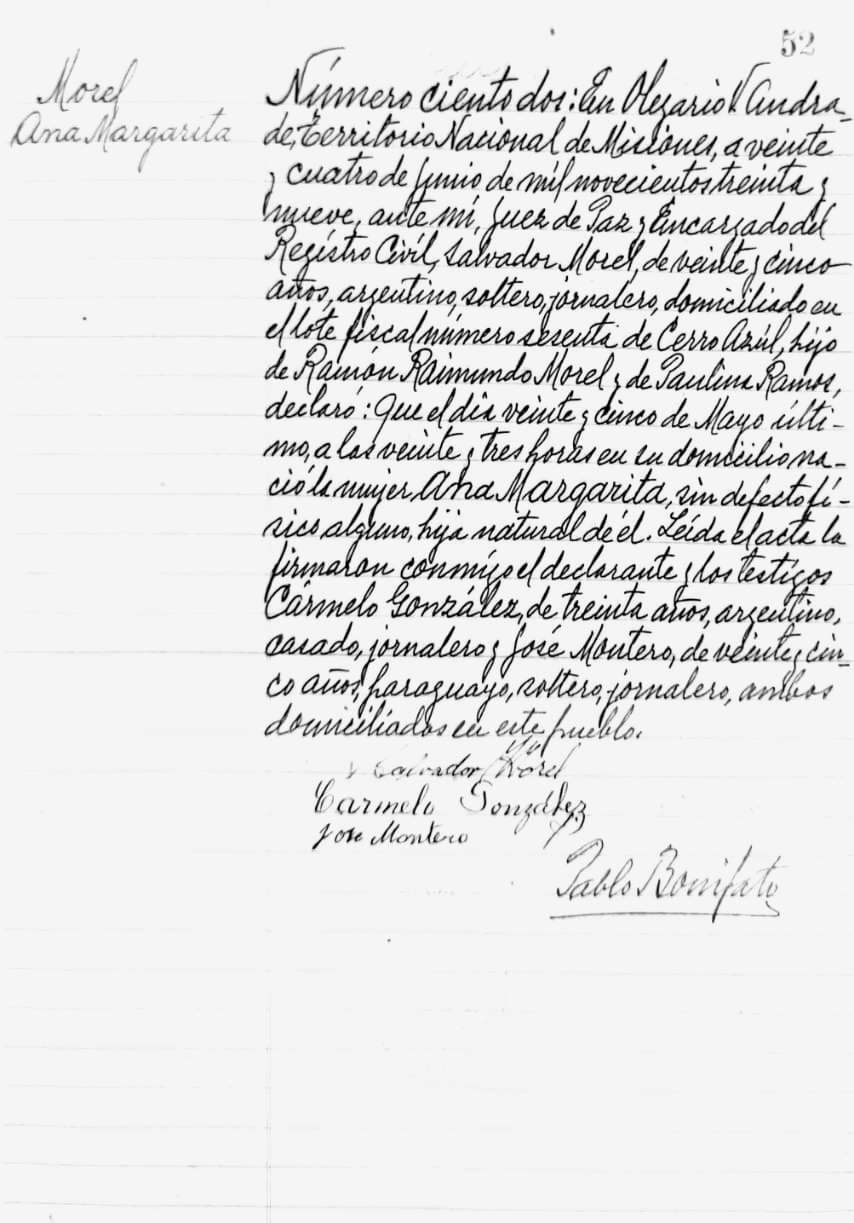 52
Morel
Ana Margarita
Número ciento dos: En Olegario V. Andra-
de, Territorio Nacional de Misiones, a veinte
y cuatro de Junio de mil novecientos treinta y
nueve, ante mí, Juez de Paz y Encargado del
Registro Civil, Salvador Morel, de veinte y cinco
años, argentino, soltero, jornalero, domiciliado en
el lote fiscal número sesenta de Cerro Azúl, hijo
de Ramón Raimundo Morel y de Paulina Ramos,
declaró: Que el día veinte y cinco de Mayo últi-
mo, a las veinte y tres horas en su domicilio na-
ció la mujer Ana Margarita, sin defecto fí-
sico alguno, hija natural de él. Leída el acta la
firmaron conmigo el declarante y los testigos
Cármelo González, de treinta años, argentino,
casado, jornalero y José Montero, de veinte y cin-
co años, paraguayo, soltero, jornalero, ambos
domiciliados en este pueblo.
Salvador Morel
Carmelo González
José Montero
Pablo Bonifato